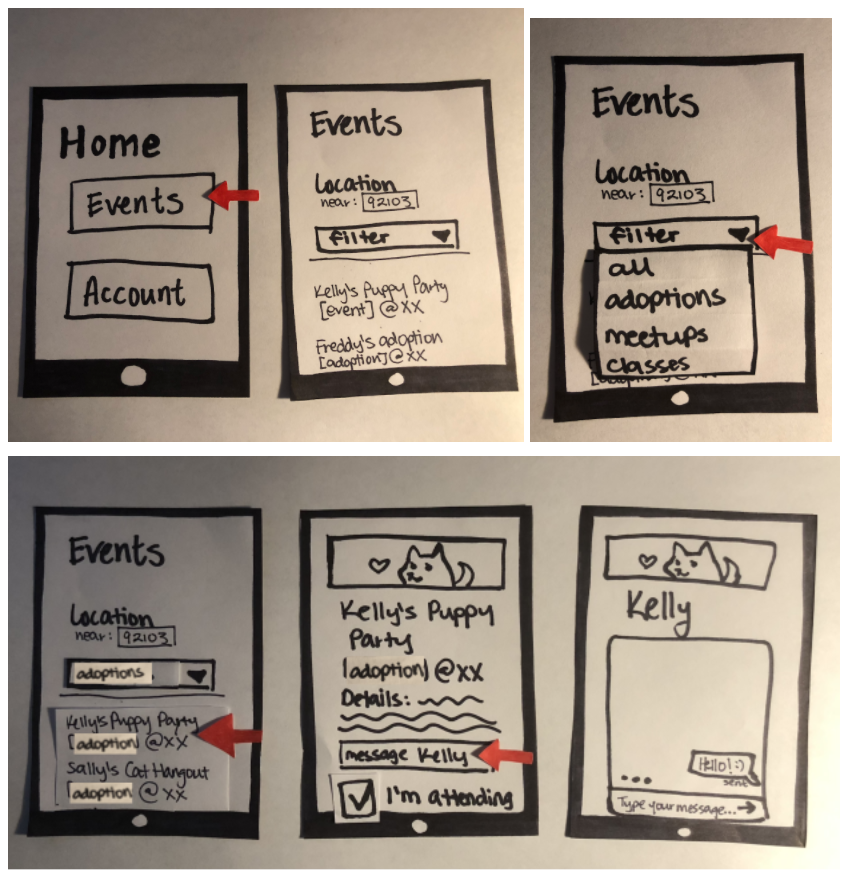 Home
Events
Account
Events
Location
near: 92103
filter
Kelly's Puppy Party
[event] @ XX
Freddy's adoption
[adoption] @ XX
Events
Location
near: 92103
filter
all
adoptions
meetups
classes
[adoption] @ XX
Events
Location
near: 92103
adoptions
Kelly's Puppy Party
[adoption] @ XX
Sally's Cat Hangout
[adoption] @ XX
Kelly's Puppy
Party
[adoption] @ XX
Details:
message Kelly
I'm attending
Kelly
Hello! :)
sent
...
Type your message...